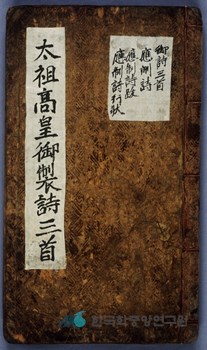 太祖高皇御製詩三首
御詩三首
應制詩
應制詩跋
應制詩行狀
한국학중앙연구원